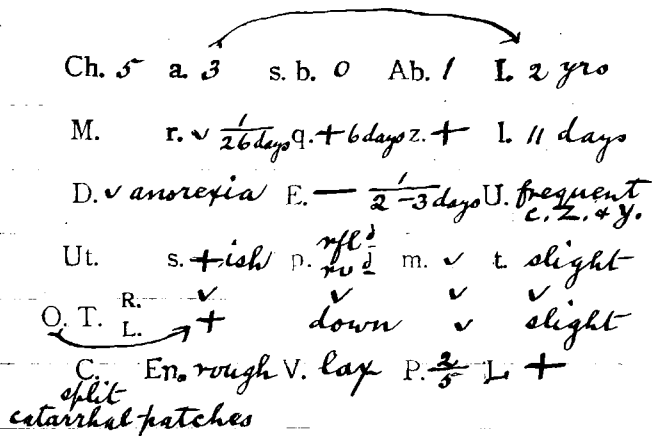 Ch. 5 a. 3 s. b. 0 Ab. 1 I. 2 yrs
M. r. ✓ 1/26 days q. + 6 days z. + l. 11 days
D. ✓ anorexia E. — 1/2-3 days U. frequent
c. Z. & y.
Ut. s. +ish p. rfl.d rv.d m. ✓ t. slight
O. T. R. ✓ ✓ ✓ ✓
L. + down ✓ slight
C. En. rough V. lax P. 2/5 L +
split
catarrhal patches